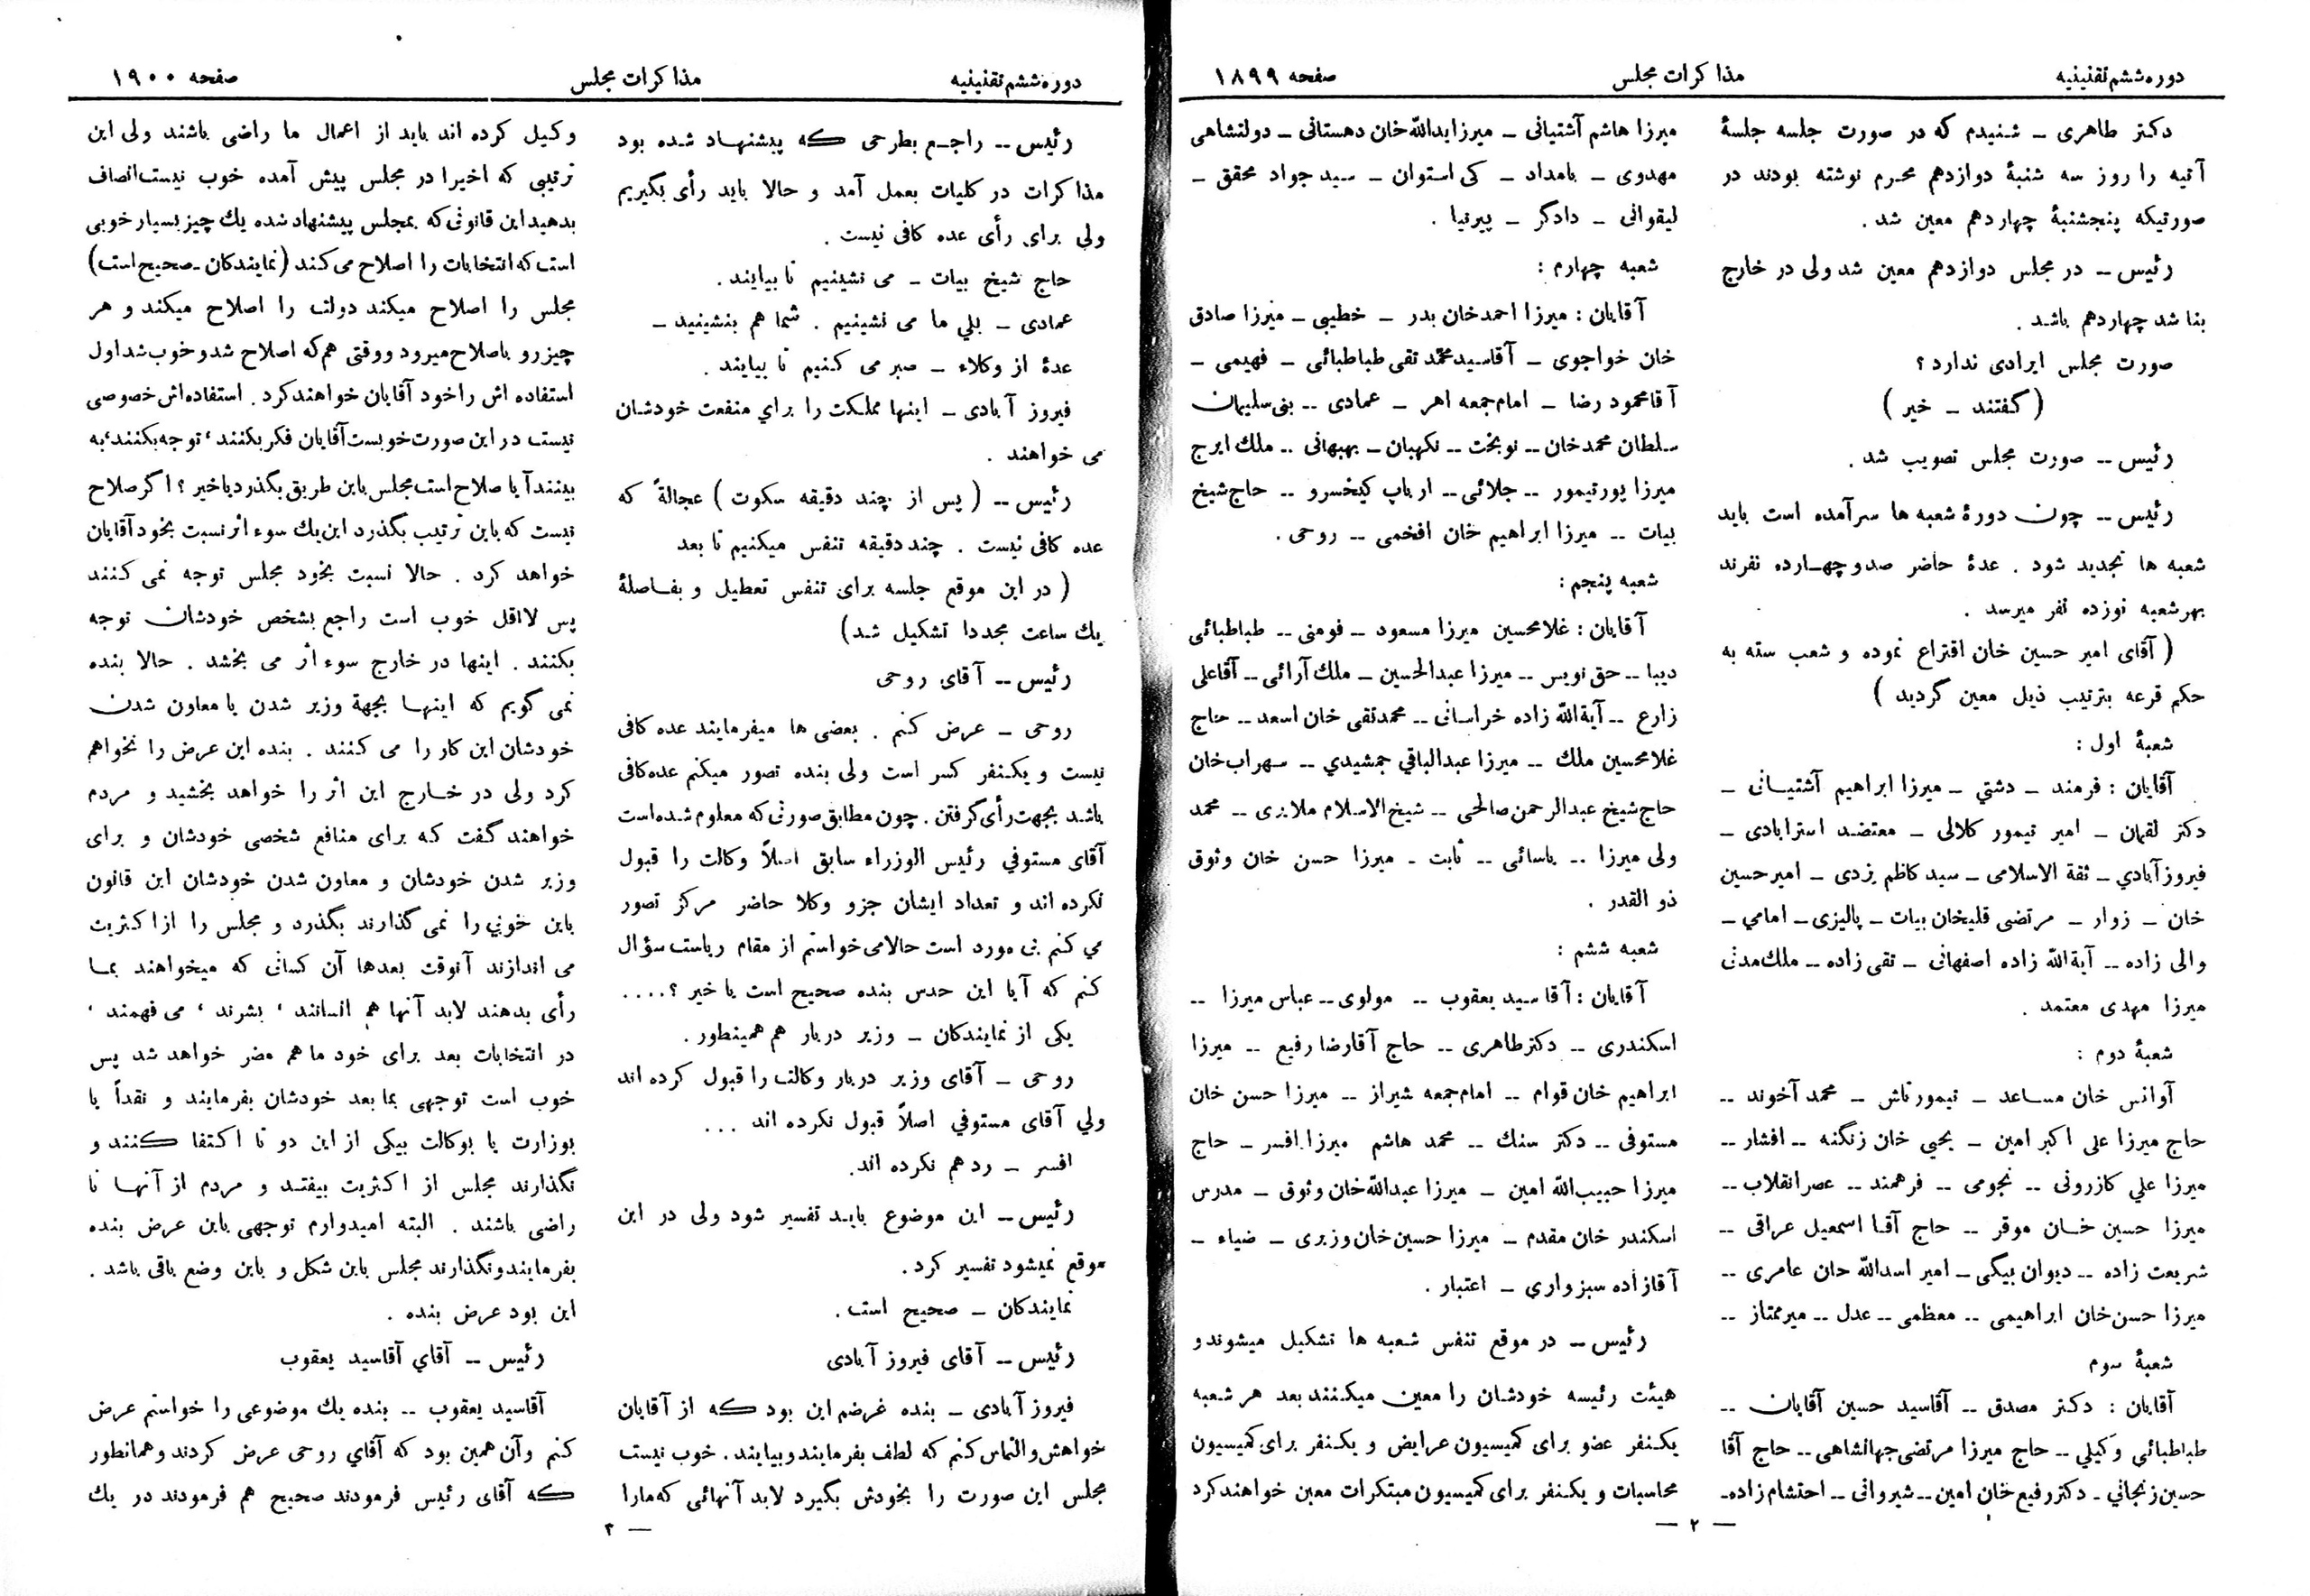 دوره ششم تقنینیه
مذاکرات مجلس
صفحه ۱۸۹۹
دکتر طاهری ـ شنیدم که در صورت جلسه جلسهٔ
آتیه را روز سه شنبهٔ دوازدهم محرم نوشته بودند در
صورتیکه پنجشنبهٔ چهاردهم معین شد .
رئیس ـ در مجلس دوازدهم معین شد ولی در خارج
بنا شد چهاردهم باشد .
صورت مجلس ایرادی ندارد ؟
( گفتند ـ خیر )
رئیس -- صورت مجلس تصویب شد .
رئیس -- چون دورهٔ شعبه ها سرآمده است باید
شعبه ها تجدید شود . عدهٔ حاضر صدو چهارده نفرند
بهرشعبه نوزده نفر میرسد .
( آقای امیر حسین خان اقتراع نموده و شعب سته به
حکم قرعه بترتیب ذیل معین گردید )
شعبهٔ اول :
آقایان : فرمند ـ دشتي ـ میرزا ابراهیم آشتیانی ـ
دکتر لقمان ـ امیر تیمور کلالی ـ معتضد استرابادی ـ
فیروزآبادي ـ ثقة الاسلامی ـ سید کاظم یزدی ـ امیرحسین
خان ـ زوار ـ مرتضی قلیخان بیات ـ پالیزی ـ امامي ـ
والی زاده -- آیةاللّه زاده اصفهانی ـ تقی زاده ـ ملك مدنی
میرزا مهدی معتمد .
شعبهٔ دوم :
آوانس خان مساعد ـ تیمورتاش ـ محمد آخوند --
حاج میرزا علی اکبر امین ـ یحیي خان زنگنه -- افشار --
میرزا علي کازرونی -- نجومی -- فرهمند -- عصرانقلاب --
میرزا حسین خان موقر -- حاج آقا اسمعیل عراقی --
شریعت زاده -- دیوان بیگی ـ امیر اسداللّه خان عامری --
میرزا حسن خان ابراهیمی -- معظمی -- عدل -- میرممتاز --
شعبهٔ سوم
آقایان : دکتر مصدق -- آقاسید حسین آقایان --
طباطبائی وکیلي -- حاج میرزا مرتضی جهانشاهی -- حاج آقا
حسین زنجاني ـ دکتر رفیع خان امین -- شیروانی -- احتشام زاده ـ
میرزا هاشم آشتیانی ـ میرزا یداللّه خان دهستانی ـ دولتشاهی
مهدوی ـ بامداد ـ کی استوان ـ سید جواد محقق ـ
لیقوانی ـ دادگر ـ پیرنیا .
شعبه چهارم :
آقایان : میرزا احمدخان بدر ـ خطیبی ـ میرزا صادق
خان خواجوی ـ آقاسید محمّد تقی طباطبائی ـ فهیمی ـ
آقا محمود رضا ـ امام جمعه اهر ـ عمادی -- بنی سلیمان
سلطان محمدخان -- نوبخت -- نگهبان ـ بهبهانی -- ملك ایرج
میرزا پورتیمور -- جلائی -- ارباب کیخسرو -- حاج شیخ
بیات -- میرزا ابراهیم خان افخمی -- روحی .
شعبه پنجم :
آقایان : غلامحسین میرزا مسعود ـ فومنی -- طباطبائی
دیبا -- حق نویس -- میرزا عبدالحسین ـ ملك آرائی -- آقاعلی
زارع -- آیةاللّه زاده خراسانی -- محمدتقی خان اسعد -- حاج
غلامحسین ملك -- میرزا عبدالباقي جمشیدي -- سهراب خان
حاج شیخ عبدالرحمن صالحی -- شیخ الاسلام ملایری -- محمد
ولی میرزا -- یاسائی -- ثابت ـ میرزا حسن خان وثوق
ذو القدر .
شعبه ششم :
آقایان : آقا سید یعقوب -- مولوی -- عباس میرزا --
اسکندری -- دکتر طاهری -- حاج آقا رضا رفیع -- میرزا
ابراهیم خان قوام -- امام جمعه شیراز -- میرزا حسن خان
مستوفی -- دکتر سنك -- محمد هاشم میرزا افسر ـ حاج
میرزا حبیب اللّه امین ـ میرزا عبداللّه خان وثوق ـ مدرس
اسکندر خان مقدم ـ میرزا حسین خان وزیری ـ ضیاء ـ
آقا زاده سبزواري ـ اعتبار .
رئیس ـ در موقع تنفس شعبه ها تشکیل میشوند و
هیئت رئیسه خودشان را معین میکنند بعد هر شعبه
یکنفر عضو برای کمیسیون عرایض و یکنفر برای کمیسیون
محاسبات و یکنفر برای کمیسیون مبتکرات معین خواهند کرد
— ۲ —
دوره ششم تقنینیه
مذاکرات مجلس
صفحه ۱۹۰۰
رئیس -- راجع بطرحی که پیشنهاد شده بود
مذاکرات در کلیات بعمل آمد و حالا باید رأی بگیریم
ولی برای رأی عده کافی نیست .
حاج شیخ بیات ـ می نشینیم تا بیایند .
عمادی ـ بلي ما می نشینیم . شما هم بنشینید ـ
عدهٔ از وکلاء ـ صبر می کنیم تا بیایند .
فیروز آبادی ـ اینها مملکت را براي منفعت خودشان
می خواهند .
رئیس -- ( پس از چند دقیقه سکوت ) عجالةً که
عده کافی نیست . چند دقیقه تنفس میکنیم تا بعد
( در این موقع جلسه برای تنفس تعطیل و بفاصلهٔ
یك ساعت مجددا تشکیل شد)
رئیس -- آقای روحی
روحی ـ عرض کنم . بعضی ها میفرمایند عده کافی
نیست و یکنفر کسر است ولی بنده تصور میکنم عده کافی
باشد بجهت رأی گرفتن . چون مطابق صورتی که معلوم شده است
آقای مستوفي رئیس الوزراء سابق اصلاً وکالت را قبول
نکرده اند و تعداد ایشان جزو وکلا حاضر مرکز تصور
مي کنم بی مورد است حالا می خواستم از مقام ریاست سؤال
کنم که آیا این حدس بنده صحیح است یا خیر ؟....
یکی از نمایندگان ـ وزیر دربار هم همینطور .
روحی ـ آقای وزیر دربار وکالت را قبول کرده اند
ولي آقای مستوفي اصلاً قبول نکرده اند ...
افسر ـ رد هم نکرده اند.
رئیس ـ این موضوع باید تفسیر شود ولی در این
موقع نمیشود تفسیر کرد.
نمایندگان ـ صحیح است .
رئیس -- آقای فیروز آبادی
فیروز آبادی ـ بنده غرضم این بود که از آقایان
خواهش و التماس کنم که لطف بفرمایند و بیایند . خوب نیست
مجلس این صورت را بخودش بگیرد لابد آنهائی که مارا
وکیل کرده اند باید از اعمال ما راضی باشند ولی این
ترتیبی که اخیرا در مجلس پیش آمده خوب نیست انصاف
بدهید این قانونی که بمجلس پیشنهاد شده یك چیز بسیار خوبی
است که انتخابات را اصلاح می کند (نمایندگان ـ صحیح است)
مجلس را اصلاح میکند دولت را اصلاح میکند و هر
چیز رو باصلاح میرود ووقتی هم که اصلاح شد و خوب شد اول
استفاده اش را خود آقایان خواهند کرد . استفاده اش خصوصی
نیست در این صورت خوبست آقایان فکر بکنند ، توجه بکنند ، به
بینند آیا صلاح است مجلس باین طریق بگذرد یا خیر ؟ اگر صلاح
نیست که باین ترتیب بگذرد این یك سوء اثر نسبت بخود آقایان
خواهد کرد . حالا نسبت بخود مجلس توجه نمی کنند
پس لااقل خوب است راجع بشخص خودشان توجه
بکنند . اینها در خارج سوء اثر می بخشد . حالا بنده
نمی گویم که اینها بجهة وزیر شدن یا معاون شدن
خودشان این کار را می کنند . بنده این عرض را نخواهم
کرد ولی در خارج این اثر را خواهد بخشید و مردم
خواهند گفت که برای منافع شخصی خودشان و برای
وزیر شدن خودشان و معاون شدن خودشان این قانون
باین خوبي را نمی گذارند بگذرد و مجلس را از اکثریت
می اندازند آنوقت بعدها آن کسانی که میخواهند بما
رأی بدهند لابد آنها هم انسانند ، بشرند ، می فهمند ،
در انتخابات بعد برای خود ما هم مضر خواهد شد پس
خوب است توجهی بما بعد خودشان بفرمایند و نقداً یا
بوزارت یا بوکالت بیکی از این دو تا اکتفا کنند و
نگذارند مجلس از اکثریت بیفتد و مردم از آنها نا
راضی باشند . البته امیدوارم توجهی باین عرض بنده
بفرمایند و نگذارند مجلس باین شکل و باین وضع باقی باشد .
این بود عرض بنده .
رئیس -- آقاي آقاسید یعقوب
آقاسید یعقوب -- بنده یك موضوعی را خواستم عرض
کنم وآن همین بود که آقاي روحی عرض کردند و همانطور
که آقای رئیس فرمودند صحیح هم فرمودند در یك
— ۳